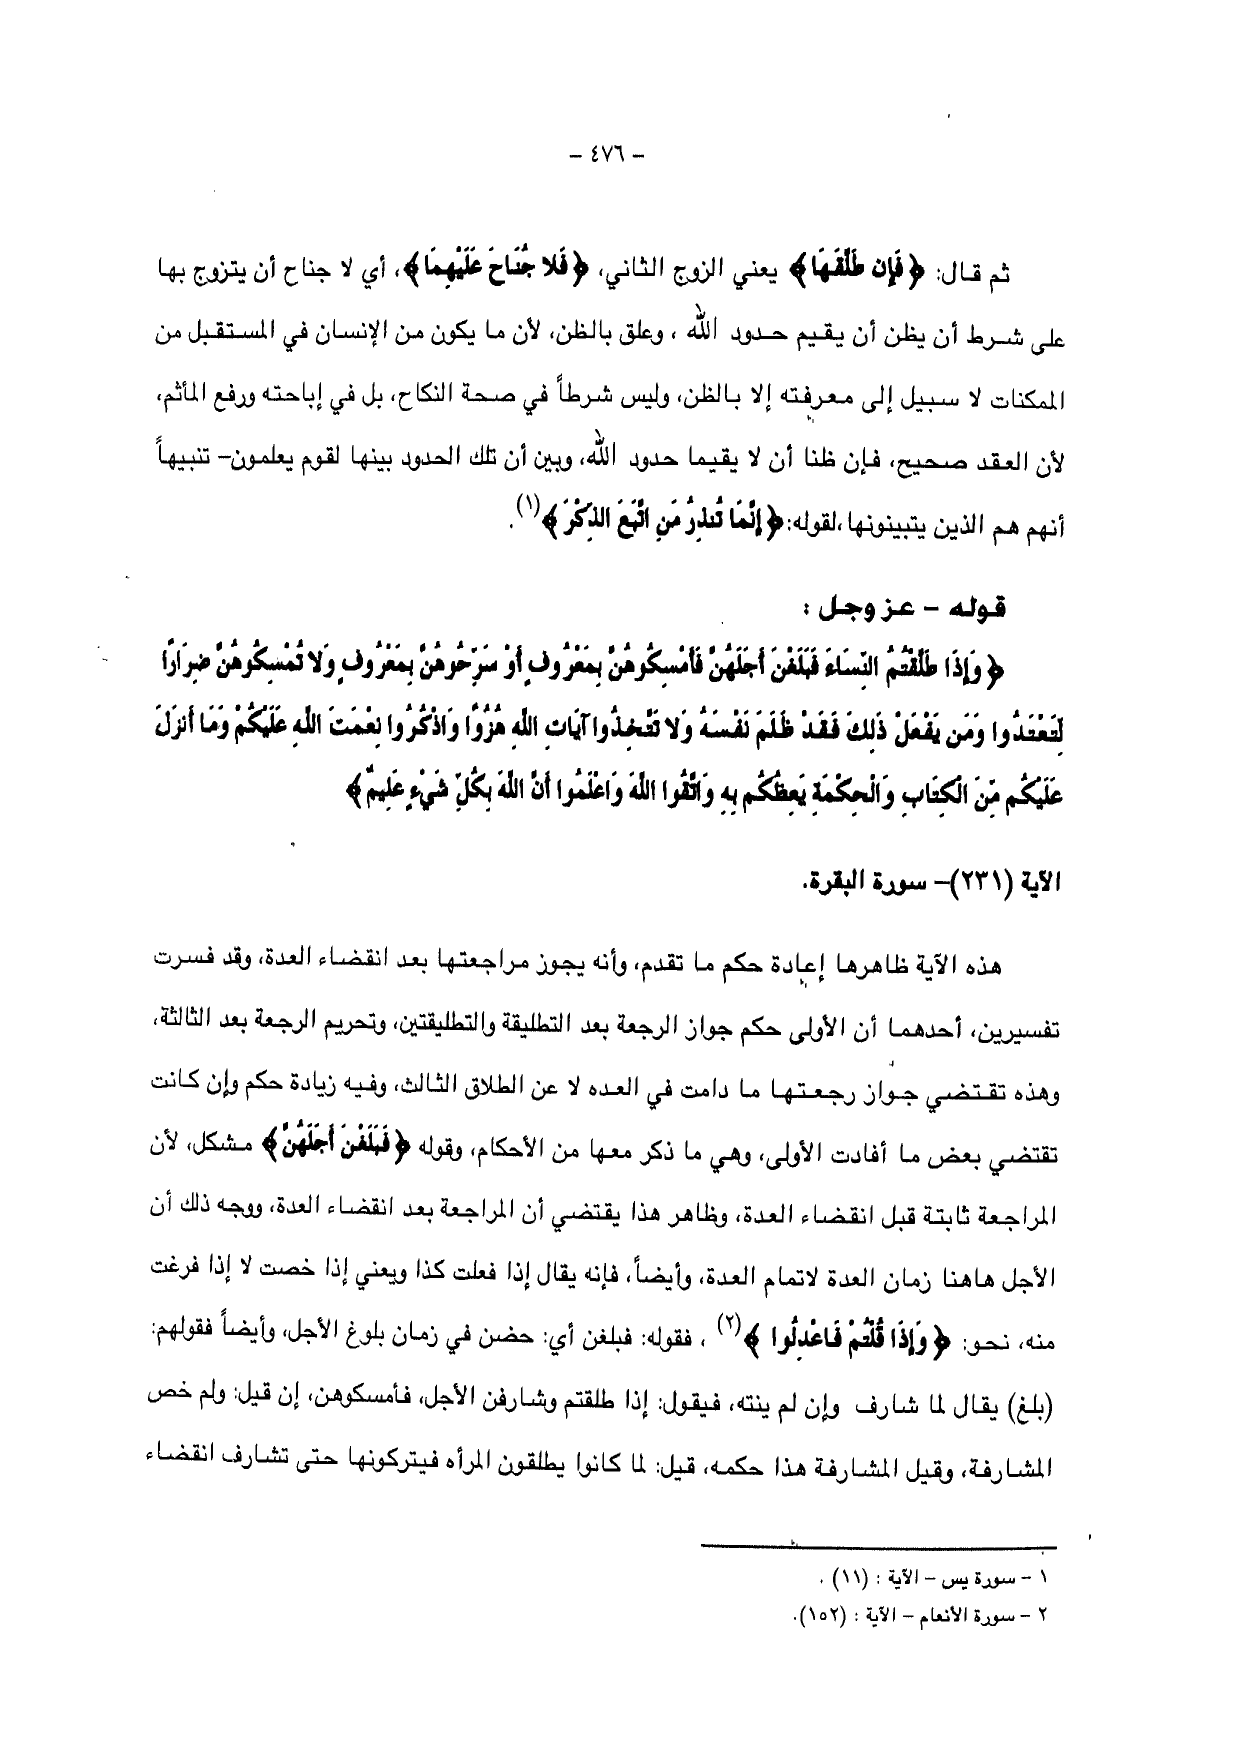 – ٤٧٦ –
ثم قال: ﴿فَإِن طَلَّقَهَا﴾ يعني الزوج الثاني، ﴿فَلا جُنَاحَ عَلَيْهِمَا﴾، أي لا جناح أن يتزوج بها
على شرط أن يظن أن يقيم حدود الله ، وعلق بالظن، لأن ما يكون من الإنسان في المستقبل من
الممكنات لا سبيل إلى معرفته إلا بالظن، وليس شرطاً في صحة النكاح، بل في إباحته ورفع المأثم،
لأن العقد صحيح، فإن ظنا أن لا يقيما حدود الله، وبين أن تلك الحدود بينها لقوم يعلمون– تنبيهاً
أنهم هم الذين يتبينونها ،لقوله: ﴿إِنَّمَا تُنذِرُ مَنِ اتَّبَعَ الذِّكْرَ﴾(١).
قوله – عز وجل :
﴿وَإِذَا طَلَّقْتُمُ النِّسَاءَ فَبَلَغْنَ أَجَلَهُنَّ فَأَمْسِكُوهُنَّ بِمَعْرُوفٍ أَوْ سَرِّحُوهُنَّ بِمَعْرُوفٍ وَلا تُمْسِكُوهُنَّ ضِرَارًا
لِتَعْتَدُوا وَمَن يَفْعَلْ ذَلِكَ فَقَدْ ظَلَمَ نَفْسَهُ وَلا تَتَّخِذُوا آيَاتِ اللهِ هُزُوًا وَاذْكُرُوا نِعْمَتَ اللهِ عَلَيْكُمْ وَمَا أَنزَلَ
عَلَيْكُم مِّنَ الْكِتَابِ وَالْحِكْمَةِ يَعِظُكُم بِهِ وَاتَّقُوا اللهَ وَاعْلَمُوا أَنَّ اللهَ بِكُلِّ شَيْءٍ عَلِيمٌ﴾
الآية (٢٣١)– سورة البقرة.
هذه الآية ظاهرها إعادة حكم ما تقدم، وأنه يجوز مراجعتها بعد انقضاء العدة، وقد فسرت
تفسيرين، أحدهما أن الأولى حكم جواز الرجعة بعد التطليقة والتطليقتين، وتحريم الرجعة بعد الثالثة،
وهذه تقتضي جواز رجعتها ما دامت في العده لا عن الطلاق الثالث، وفيه زيادة حكم وإن كانت
تقتضي بعض ما أفادت الأولى، وهي ما ذكر معها من الأحكام، وقوله ﴿فَبَلَغْنَ أَجَلَهُنَّ﴾ مشكل، لأن
المراجعة ثابتة قبل انقضاء العدة، وظاهر هذا يقتضي أن المراجعة بعد انقضاء العدة، ووجه ذلك أن
الأجل هاهنا زمان العدة لاتمام العدة، وأيضاً، فإنه يقال إذا فعلت كذا ويعني إذا خصت لا إذا فرغت
منه، نحو: ﴿وَإِذَا قُلْتُمْ فَاعْدِلُوا ﴾(٢) ، فقوله: فبلغن أي: حضن في زمان بلوغ الأجل، وأيضاً فقولهم:
(بلغ) يقال لما شارف وإن لم ينته، فيقول: إذا طلقتم وشارفن الأجل، فأمسكوهن، إن قيل: ولم خص
المشارفة، وقيل المشارفة هذا حكمه، قيل: لما كانوا يطلقون المرأه فيتركونها حتى تشارف انقضاء
١ – سورة يس – الآية : (١١) .
٢ – سورة الأنعام – الآية : (١٥٢).